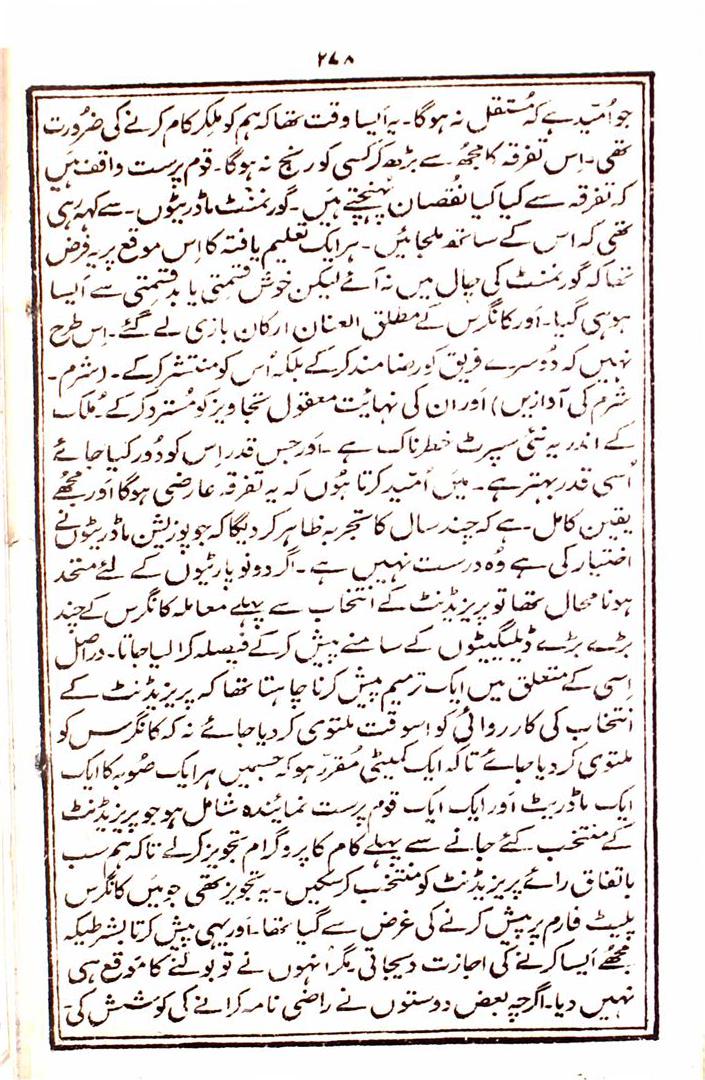 ۲۷۸
جو اُمّید ہے کہ مُستقل نہ ہوگا۔ یہ اَیسا وقت تھا کہ ہم کو ملکر کام کرنے کی ضرُورت
تھی۔ اِس تفرقہ کا مجھ سے بڑھ کر کسی کو رنج نہ ہوگا۔ قوم پرست واقف ہَیں
کہ تفرقہ سے کیا کیا نُقصان پہنچتے ہَیں۔ گورنمنٹ ماڈریٹوں۔ سے کہہ رہی
تھی کہ اس کے ساتھ ملجائیں۔ ہر ایک تعلیم یافتہ کا اِس موقع پر یہ فرض
تھا کہ گورنمنٹ کی چال میں نہ آئے لیکن خوش قسمتی یا بدقسمتی سے اَیسا
ہو ہی گیا۔ اَور کانگرس کے مطلق العنان ارکان بازی لے گئے۔ اِس طرح
نہیں کہ دُوسرے فریق کو رضامند کرکے بلکہ اُس کو منتشر کرکے۔ (شرم۔
شرم کی آوازیں) اَور ان کی نہائیت معقول تجاویز کو مُسترد کرکے۔ مُلک
کے اندر یہ نئی سپرٹ خطرناک ہے۔ اَور جس قدر اِس کو دُور کیا جائے
اُسی قدر بہتر ہے۔ میَں اُمّید کرتا ہُوں کہ یہ تفرقہ عارضی ہوگا اَور مجھے
یقین کامل۔ ہے کہ چند سال کا تجربہ ظاہر کردیگا کہ جو پوزیشن ماڈریٹوں نے
اختیار کی ہے وُہ درست نہیں ہے۔ اگر دونو پارٹیوں کے لئے متحد
ہونا محال تھا تو پریزیڈنٹ کے انتخاب سے پہلے معاملہ کانگرس کے چند
بڑے بڑے ڈیلیگیٹوں کے سامنے پیش کرکے فیصلہ کرا لیا جاتا۔ دراصل
اِسی کے متعلق میں ایک ترمیم پیش کرنا چاہتا تھا کہ پریزیڈنٹ کے
انتخاب کی کارروائی کو اسوقت ملتوی کر دیا جائے نہ کہ کانگرسس کو
ملتوی کر دیا جائے تاکہ ایک کمیٹی مُقرّر ہو کہ جسمیں ہر ایک صُوبہ کا ایک
ایک ماڈریٹ اَور ایک ایک قوم پرست نمائندہ شامل ہو جو پریزیڈنٹ
کے منتخب کئے جانے سے پہلے کام کا پروگرام تجویز کرلے تاکہ ہم سب
باتفاق رائے پریزیڈنٹ کو منتخب کرسکیں۔ یہ تجویز تھی جو میَں کانگرس
پلیٹ فارم پر پیش کرنے کی غرض سے گیا تھا۔ اَور یہی پیش کرتا بشرطیکہ
مجھے اَیسا کرنے کی اجازت دیجاتی مگر اُنہوں نے تو بولنے کا مَوقع ہی
نہیں دیا۔ اگرچہ بعض دوستوں نے راضی نامہ کرانے کی کوشش کی۔